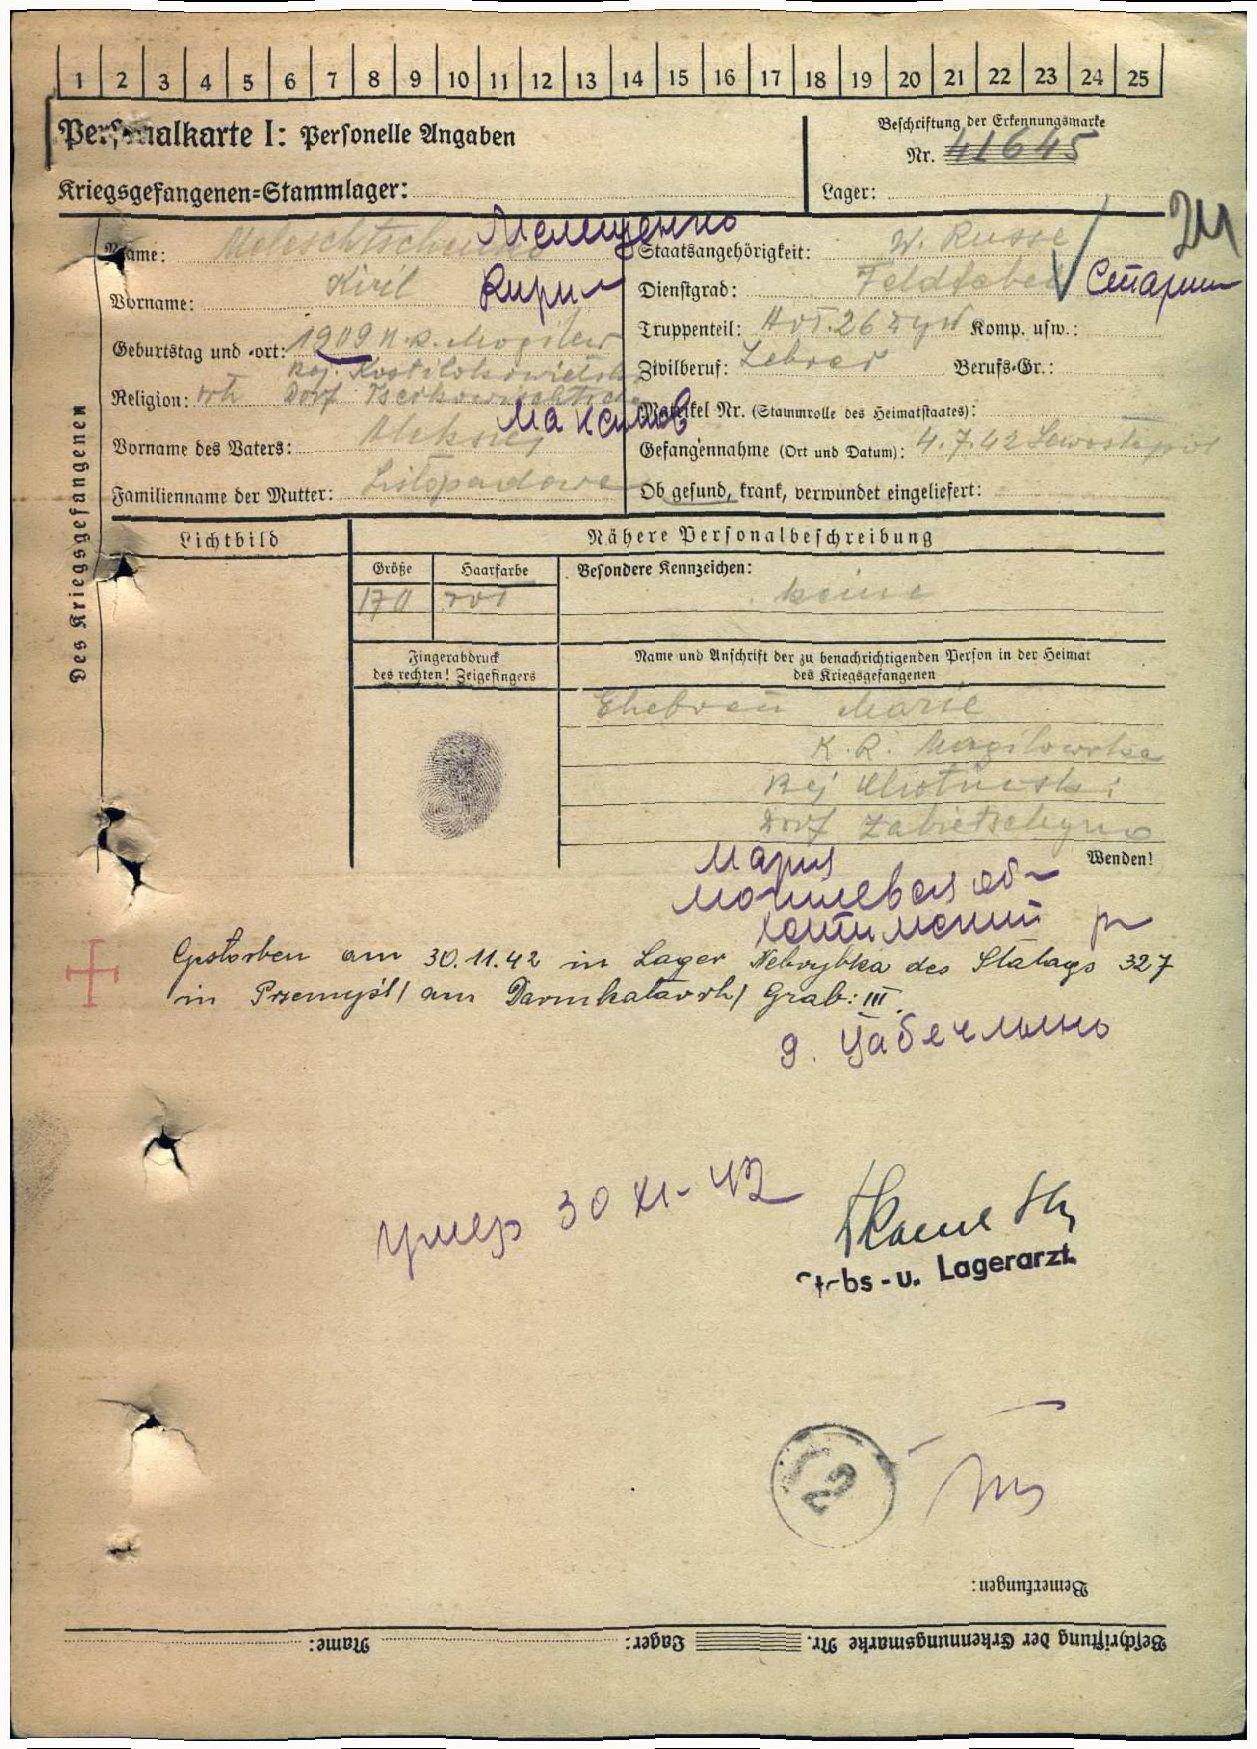 1 2 3 4 5 6 7 8 9 10 11 12 13 14 15 16 17 18 19 20 21 22 23 24 25
Personalkarte I: Personelle Angaben
Beschriftung der Erkennungsmarke
Nr. 41645
Kriegsgefangenen-Stammlager:
Lager:
Des Kriegsgefangenen
Name: Meleschtschenko Мелещенко
Vorname: Kiril Кирил
Geburtstag und -ort: 1909 K.R. Mogilew
Raj.
Religion: orth Dorf
Vorname des Vaters: Aleksiej
Familienname der Mutter: Listopadowa
Staatsangehörigkeit: W. Russe
Dienstgrad: Feldfebel Старши
Truppenteil: Komp. usw.:
Zivilberuf: Lehrer Berufs-Gr.:
Matrikel Nr. (Stammrolle des Heimatstaates):
Gefangennahme (Ort und Datum): 4.7.42 Sewastopol
Ob gesund, krank, verwundet eingeliefert:
Lichtbild
Nähere Personalbeschreibung
Größe Haarfarbe Besondere Kennzeichen:
170 rot keine
Fingerabdruck
des rechten! Zeigefingers
Name und Anschrift der zu benachrichtigenden Person in der Heimat
des Kriegsgefangenen
Ehefrau Marie
K. R. Mogilowska
Rej
Dorf
Wenden!
Мария
Могилевская об
хотимский р
Gestorben am 30.11.42 in Lager Nehrybka des Stalags 327
in Przemyśl / am Darmkatarrh / Grab: III.
д.
умер 30 XI-42
Stabs-u. Lagerarzt.
2
Bemerkungen:
Beschriftung der Erkennungsmarke Nr. Lager: Name: